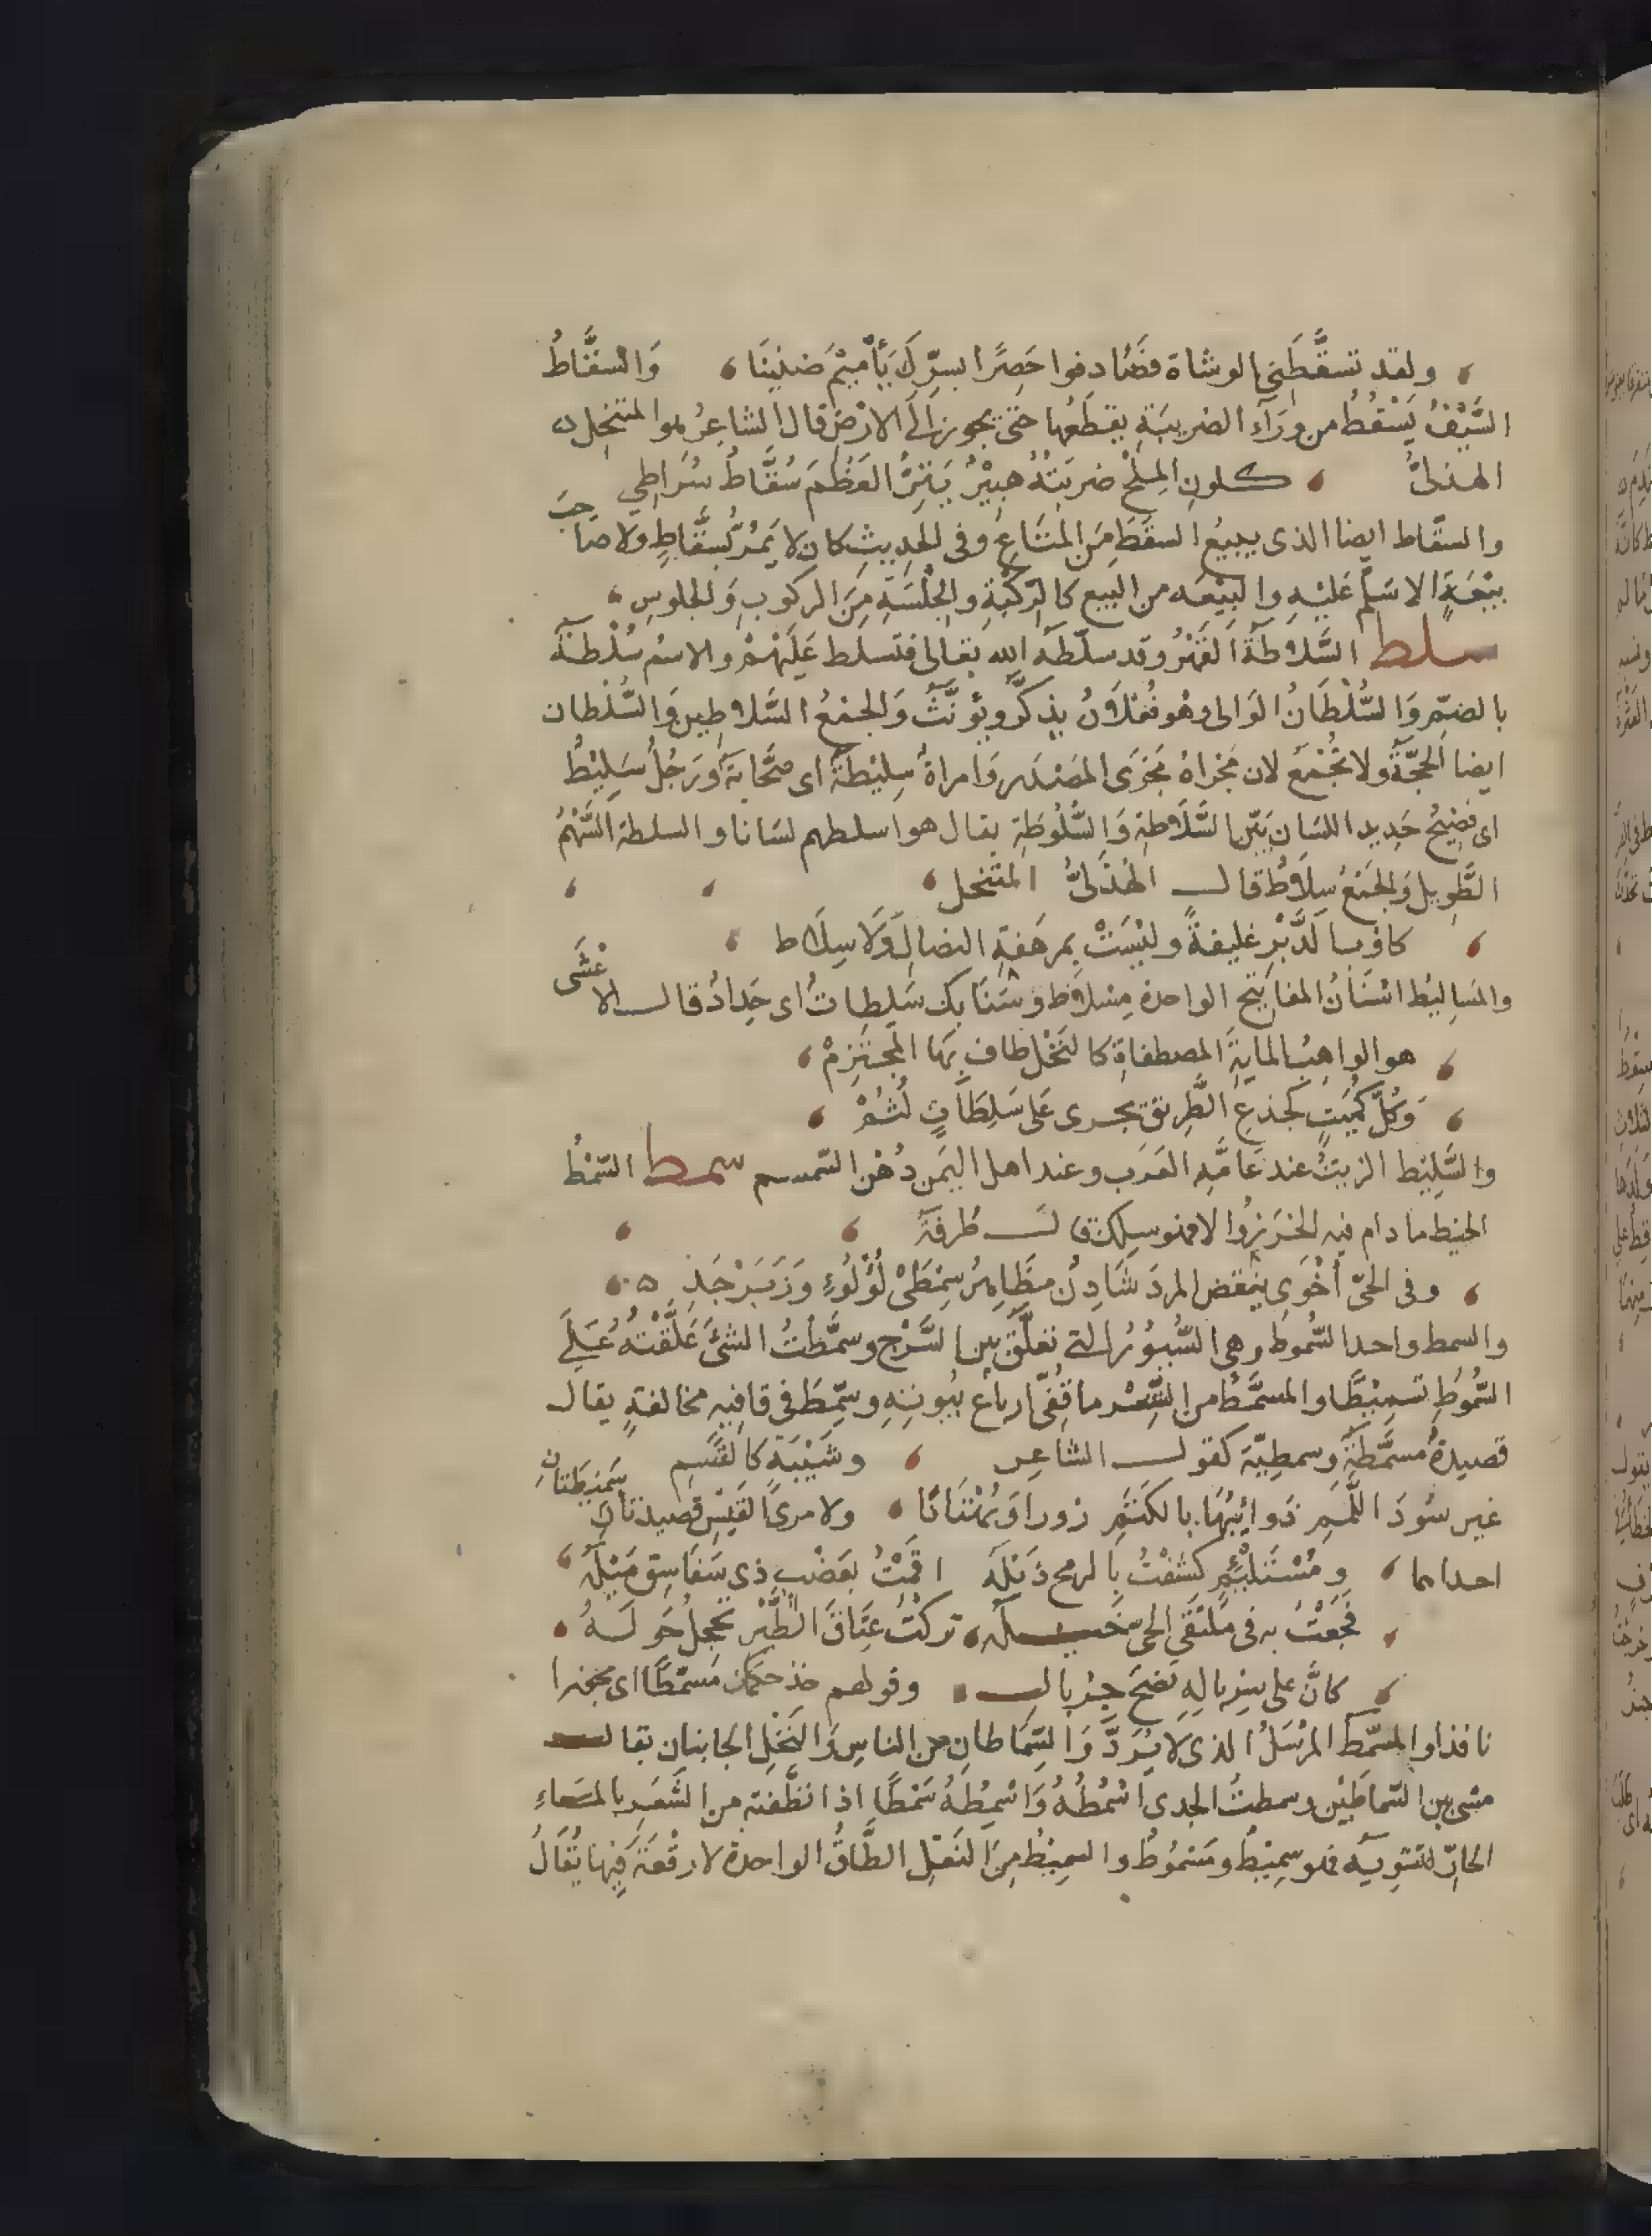 ولقد تسقَّطَنِي الوشاة فصَادفوا حَصِرًا بسِرِّكَ يَا أُمَيْمَ ضنينَا وَالسقَّاطُ
السَّيْفُ يَسْقُطُ من وَرَآءِ الضريبَةِ يقطَعُها حَتّى يجوز إلَى الارْضِ قال الشاعِرُ هو المتنخِل
الهذلىُّ كلونِ المِلحْ ضربَتُهُ هبِيْرٌ يَتِرُّ العَظْمَ سُقَّاطٌ سُرَاطِي
والسقَّاط ايضا الذى يبيعُ السقَطَ مِنَ المتَاعِ وفى الحدِيثِ كان لا يَمُرُّ بسَقَّاطٍ ولا صاحِبَ
بيْعَةٍ الا سَلَّم عَليْهِ والبِيْعَه من البَيع كالرِّكْبَةِ والجِلْسَةِ مِنَ الركوبِ وَالجلوسِ
سلط السَّلاطَةُ القَهْرُ وقد سلّطه الله تعالى فتسلط عَلَيْهِمْ والاسْم سُلْطَةٌ
بالضمِّ وَالسُّلْطَانُ الوَالى وهُو فُعْلَانٌ يذكَّرُ ويُؤنَّثُ وَالجمْعُ السَّلاطِين وَالسُّلْطان
ايضا الحجّةُ ولا يُجْمَعُ لان مَجْراهُ مَجْرَى المصْدَر وَامراةٌ سِليْطَةٌ اى صَخَّابَةٌ وَرَجُلٌ سَلِيْطٌ
اى فصِيْحٌ حَدِيد اللسَان بَيّن السَّلَاطةِ وَالسُّلُوطَةِ يقال هو اسلطهم لسَانا والسلطة السَّهْمُ
الطَّوِيل وَالجَمْعُ سِلَاطٌ قال الهُذَلىُّ المتنخل
كاوب الدَّبْرِ غليضةً وليْسَتْ بمرهَفةِ النصالِ وَلَا سِلَاط
والمَسَالِيْط اسْنَانُ المفاتِيْح الواحدة مِسْلاط وسَنَابك سَلِطاتٌ اى حِدادٌ قال الاعْشَى
هو الواهِبُ المايةَ المصطفاةِ كالنَّخْل طاف بِهَا المجْتَزِمْ
وَكُلّ كُمَيتٍ كجذعِ الطَّرِيق يجرى عَلى سَلِطَاتٍ لُثُمْ
والسَّلِيْط الزيتُ عند عَامَّةِ العَرَب وعند اهل اليَمن دُهْن السّمسم سمط السّمْطُ
الخيط ما دام فيه الخَرَز والا فهو سِلك قال طَرفَةُ
وفى الحَىّ أحْوَى ينْفض المردَ شَادِنٌ مظَاهِرُ سِمْطَىْ لُؤْلُوءٍ وَزَبَرْجَدِ
والسمط واحد السُّموُط وهى السُّيوُرُ التى تعلَّق من السَّرْج وسَمَّطتُ الشئَ عَلَّقْتُهُ عَلَى
السُّمُوطِ تسمِيْطًا والمسمَّطُ من الشِّعْر ما قُفِّىَ ارباعُ بُيوتِهِ وسُمِّطَ فى قافِيهٍ مخالفةٍ يقال
قصيدةٌ مُسمَّطةٌ وسمطِيّة كقول الشاعِر وشَيْبَةٍ كالقَسِم
غيرِ سُودَ اللِّمَمِ دَواَيْتُهَا بالكَتَمِ زورا وَبُهْتَانَا ولامرئ القَيْسِ قصيدتانِ سِمْطِيَّتانِ
احداهما ومُسْتَلْئِمٍ كشفْتُ بالرمح ذَيْلَهُ اقمْتُ بعَضْبٍ ذى سَفَاسِقَ مَيْلَهُ
فجَعْتُ به فى مُلْتَقَى الحى خيله تركْتُ عِتَاقَ الطَّيْر تحجلُ حَوْلَهُ
كانَّ على سِرْبالِهِ نضحَ جِرْيال وقولهم خذ حكمك مُسَمّطًا اى مجوزا
نافذا والمسمّط المرْسَلُ الذى لا يُرَدُّ وَالسِّمَاطانِ من الناسِ وَالنّخْلِ الجَانبَان يقال
مشى بين السّماطَيْن وسمطتُ الجدى اسْمُطُهُ وَاسْمِطهُ سَمْطًا اذا نظّفته من الشَّعَرِ بالمَاءِ
الحارّ لتشوِيه فهو سمِيْطٌ ومَسْمُوطٌ والسمِيْطُ مِنَ النَعْلِ الطَّاقُ الواحدة لا رقْعَةَ فِيها يُقَالُ